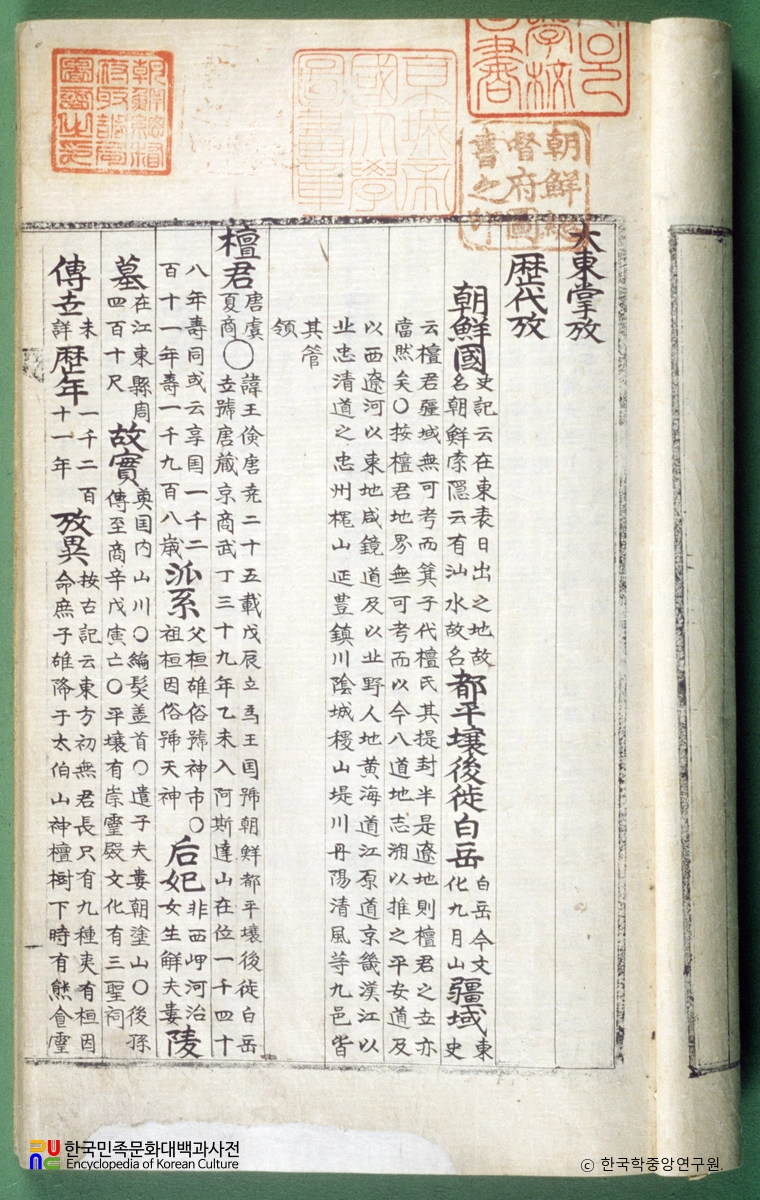 大東掌攷
歷代攷
朝鮮國 史記云在東表日出之地故
名朝鮮索隱云有汕水故名 都平壤後徙白岳 白岳今文
化九月山 疆域 東
史
云檀君疆域無可考而箕子代檀氏其提封半是遼地則檀君之世亦
當然矣○按檀君地界無可考而以今八道地志溯以推之平安道及
以西遼河以東地咸鏡道及以北野人地黄海道江原道京畿漢江以
北忠清道之忠州槐山延豊鎮川陰城稷山堤川丹陽清風等九邑皆
其管
領
檀君 唐虞
夏商 ○ 諱王倹唐堯二十五載戊辰立爲王国號朝鮮都平壤後徙白岳
立號唐蔵京商武丁三十九年乙未入阿斯達山在位一千四十
八年壽同或云享国一千二
百十一年壽一千九百八歲 派系 父桓雄俗號神市○
祖桓因俗號天神 后妃 非西岬河治
女生解夫婁 陵
墓 在江東縣周
四百十尺 故實 奠国内山川○編髮盖首○遣子夫婁朝塗山○後孫
傳至商辛戊寅亡○平壤有崇靈殿文化有三聖祠
傳世 未
詳 歷年 一千二百
十一年 攷異 按古記云東方初無君長只有九種夷有桓因
命庶子雄降于太伯山神檀樹下時有熊食靈
朝鮮總督府圖書之印
京城帝國大學圖書章
한국민족문화대백과사전
Encyclopedia of Korean Culture
© 한국학중앙연구원.